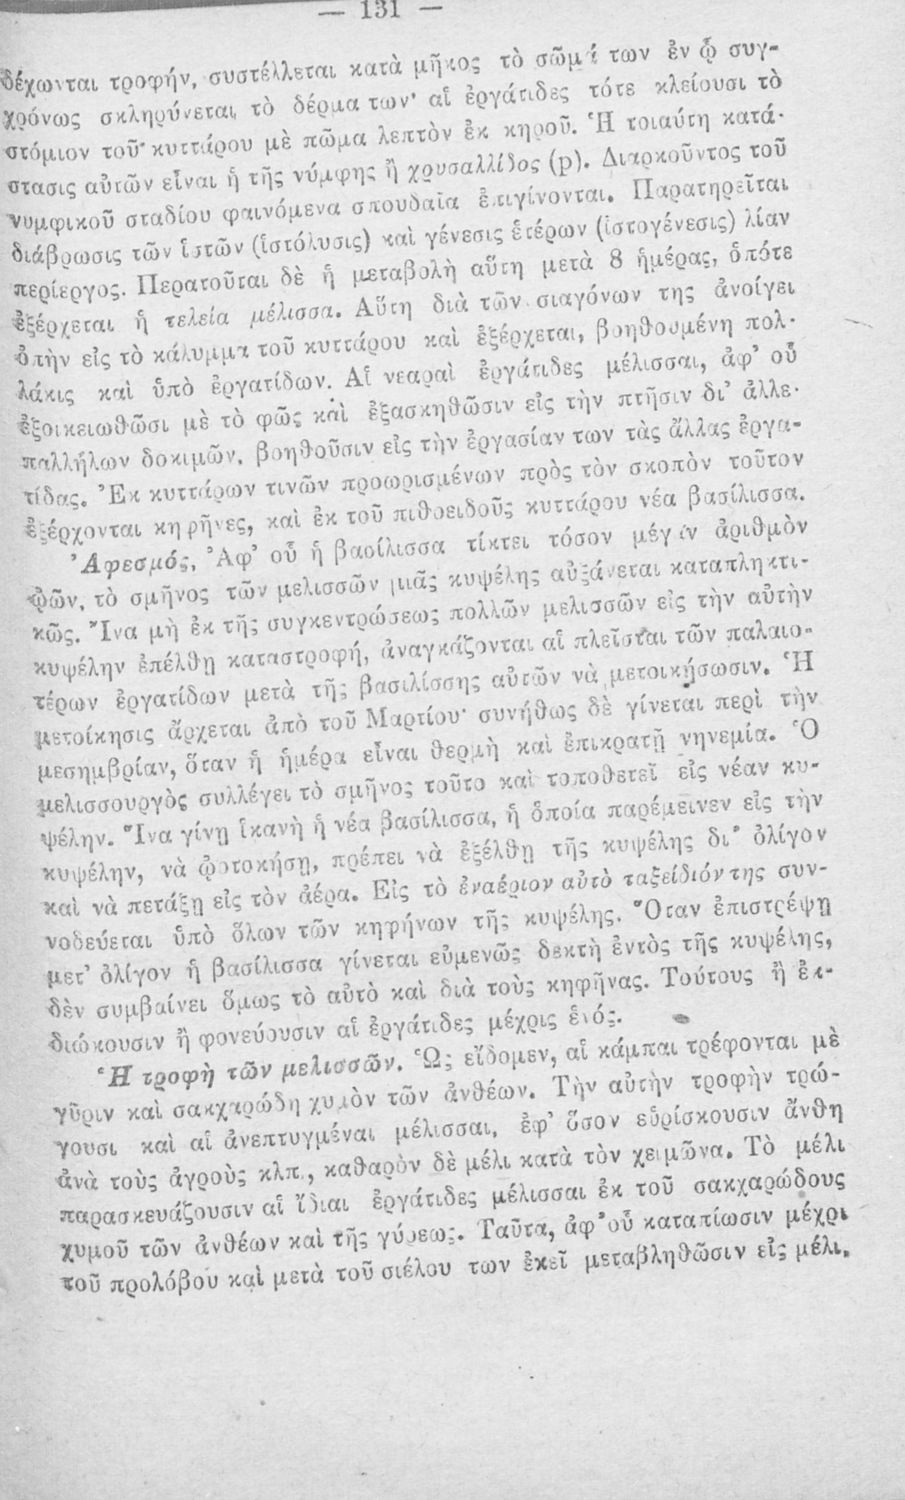 — 131 —
δέχωνται τροφήν, συστέλλεται κατὰ μῆκος τὸ σῶμά των ἐν ᾧ συγ-
χρόνως σκληρύνεται τὸ δέρμα των· αἱ ἐργάτιδες τότε κλείουσι τὸ
στόμιον τοῦ κυττάρου μὲ πῶμα λεπτὸν ἐκ κηροῦ. Ἡ τοιαύτη κατά-
στασις αὐτῶν εἶναι ἡ τῆς νύμφης ἢ χρυσαλλίδος (p). Διαρκοῦντος τοῦ
νυμφικοῦ σταδίου φαινόμενα σπουδαῖα ἐπιγίνονται. Παρατηρεῖται
διάβρωσις τῶν ἱστῶν (ἱστόλυσις) καὶ γένεσις ἑτέρων (ἱστογένεσις) λίαν
περίεργος. Περατοῦται δὲ ἡ μεταβολὴ αὕτη μετὰ 8 ἡμέρας, ὁπότε
ἐξέρχεται ἡ τελεία μέλισσα. Αὕτη διὰ τῶν σιαγόνων της ἀνοίγει
ὀπὴν εἰς τὸ κάλυμμα τοῦ κυττάρου καὶ ἐξέρχεται, βοηθουμένη πολ-
λάκις καὶ ὑπὸ ἐργατίδων. Αἱ νεαραὶ ἐργάτιδες μέλισσαι, ἀφ' οὗ
ἐξοικειωθῶσι μὲ τὸ φῶς καὶ ἐξασκηθῶσιν εἰς τὴν πτῆσιν δι' ἀλλε-
παλλήλων δοκιμῶν, βοηθοῦσιν εἰς τὴν ἐργασίαν των τὰς ἄλλας ἐργα-
τίδας. Ἐκ κυττάρων τινῶν προωρισμένων πρὸς τὸν σκοπὸν τοῦτον
ἐξέρχονται κηρῆνες, καὶ ἐκ τοῦ πιθοειδοῦς κυττάρου νέα βασίλισσα.
Ἀφεσμός. Ἀφ' οὗ ἡ βασίλισσα τίκτει τόσον μέγαν ἀριθμὸν
ᾠῶν, τὸ σμῆνος τῶν μελισσῶν μιᾶς κυψέλης αὐξάνεται καταπληκτι-
κῶς. Ἵνα μὴ ἐκ τῆς συγκεντρώσεως πολλῶν μελισσῶν εἰς τὴν αὐτὴν
κυψέλην ἐπέλθῃ καταστροφή, ἀναγκάζονται αἱ πλεῖσται τῶν παλαιο-
τέρων ἐργατίδων μετὰ τῆς βασιλίσσης αὐτῶν νὰ μετοικήσωσιν. Ἡ
μετοίκησις ἄρχεται ἀπὸ τοῦ Μαρτίου· συνήθως δὲ γίνεται περὶ τὴν
μεσημβρίαν, ὅταν ἡ ἡμέρα εἶναι θερμὴ καὶ ἐπικρατῇ νηνεμία. Ὁ
μελισσουργὸς συλλέγει τὸ σμῆνος τοῦτο καὶ τοποθετεῖ εἰς νέαν κυ-
ψέλην. Ἵνα γίνῃ ἱκανὴ ἡ νέα βασίλισσα, ἡ ὁποία παρέμεινεν εἰς τὴν
κυψέλην, νὰ ᾠοτοκήσῃ, πρέπει νὰ ἐξέλθῃ τῆς κυψέλης δι' ὀλίγον
καὶ νὰ πετάξῃ εἰς τὸν ἀέρα. Εἰς τὸ ἐναέριον αὐτὸ ταξείδιόν της συν-
νοδεύεται ὑπὸ ὅλων τῶν κηφήνων τῆς κυψέλης. Ὅταν ἐπιστρέψῃ
μετ' ὀλίγον ἡ βασίλισσα γίνεται εὐμενῶς δεκτὴ ἐντὸς τῆς κυψέλης,
δὲν συμβαίνει ὅμως τὸ αὐτὸ καὶ διὰ τοὺς κηφῆνας. Τούτους ἢ ἐκ-
διώκουσιν ἢ φονεύουσιν αἱ ἐργάτιδες μέχρις ἑνός.
Ἡ τροφὴ τῶν μελισσῶν. Ὡς εἴδομεν, αἱ κάμπαι τρέφονται μὲ
γῦριν καὶ σακχαρώδη χυμὸν τῶν ἀνθέων. Τὴν αὐτὴν τροφὴν τρώ-
γουσι καὶ αἱ ἀνεπτυγμέναι μέλισσαι, ἐφ' ὅσον εὑρίσκουσιν ἄνθη
ἀνὰ τοὺς ἀγροὺς κλπ., καθαρὸν δὲ μέλι κατὰ τὸν χειμῶνα. Τὸ μέλι
παρασκευάζουσιν αἱ ἴδιαι ἐργάτιδες μέλισσαι ἐκ τοῦ σακχαρώδους
χυμοῦ τῶν ἀνθέων καὶ τῆς γύρεως. Ταῦτα, ἀφ' οὗ καταπίωσιν μέχρι
τοῦ προλόβου καὶ μετὰ τοῦ σιέλου των ἐκεῖ μεταβληθῶσιν εἰς μέλι,